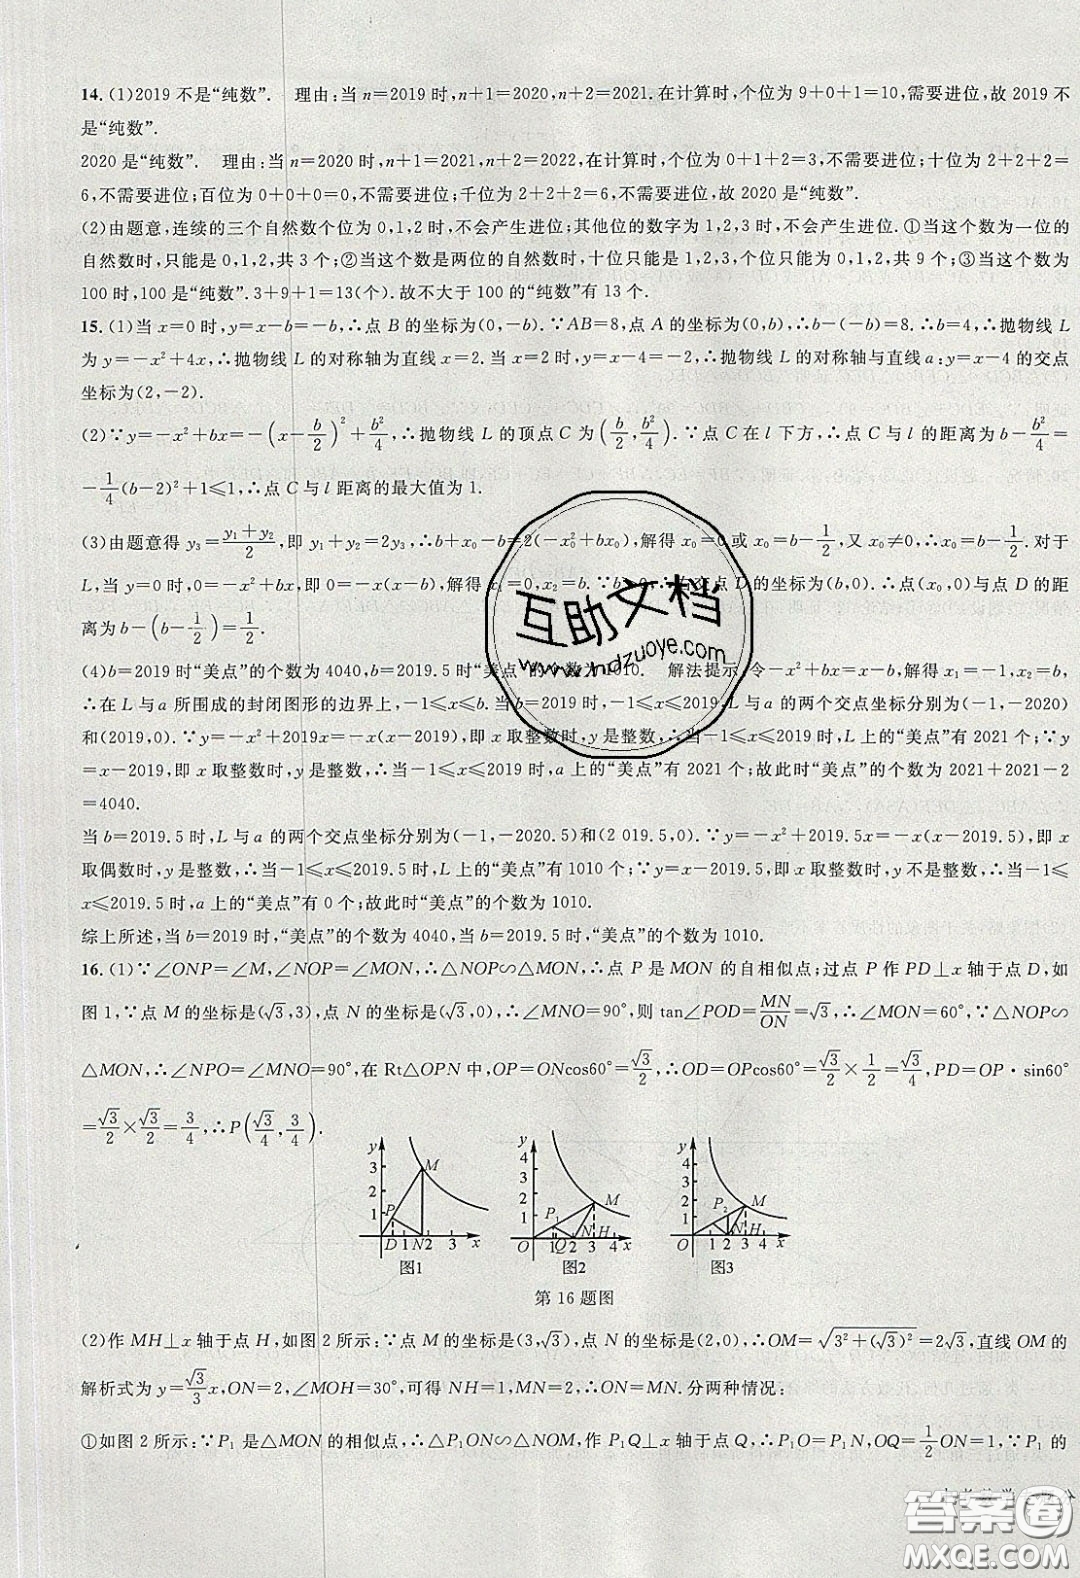 14. (1)2019 不是“纯数”. 理由:当 n=2019 时,n+1=2020,n+2=2021.在计算时,个位为 9+0+1=10,需要进位,故 2019 不
是“纯数”.
2020 是“纯数”. 理由:当 n=2020 时,n+1=2021,n+2=2022,在计算时,个位为 0+1+2=3,不需要进位;十位为 2+2+2=
6,不需要进位;百位为 0+0+0=0,不需要进位;千位为 2+2+2=6,不需要进位,故 2020 是“纯数”.
(2)由题意,连续的三个自然数个位为 0,1,2 时,不会产生进位;其他位的数字为 1,2,3 时,不会产生进位.①当这个数为一位的
自然数时,只能是 0,1,2,共 3 个;②当这个数是两位的自然数时,十位只能是 1,2,3,个位只能为 0,1,2,共 9 个;③当这个数为
100 时,100 是“纯数”.3+9+1=13(个).故不大于 100 的“纯数”有 13 个.
15. (1)当 x=0 时,y=x-b=-b,∴点 B 的坐标为(0,-b).∵AB=8,点 A 的坐标为(0,b),∴b-(-b)=8.∴b=4,∴抛物线 L
为 y=-x²+4x,∴抛物线 L 的对称轴为直线 x=2.当 x=2 时,y=x-4=-2,∴抛物线 L 的对称轴与直线 a:y=x-4 的交点
坐标为(2,-2).
(2)∵y=-x²+bx=-(x-b/2)²+b²/4,∴抛物线 L 的顶点 C 为(b/2,b²/4).∵点 C 在 l 下方,∴点 C 与 l 的距离为 b-b²/4=
-1/4(b-2)²+1≤1,∴点 C 与 l 距离的最大值为 1.
(3)由题意得 y₃=(y₁+y₂)/2,即 y₁+y₂=2y₃,∴b+x₀-b=2(-x₀²+bx₀),解得 x₀=0 或 x₀=b-1/2,又 x₀≠0,∴x₀=b-1/2.对于
L,当 y=0 时,0=-x²+bx,即 0=-x(x-b),解得 x₁=0,x₂=b.∵b>0,∴右交点 D 的坐标为(b,0).∴点(x₀,0)与点 D 的距
离为 b-(b-1/2)=1/2.
(4)b=2019 时“美点”的个数为 4040,b=2019.5 时“美点”的个数为 1010. 解法提示:令-x²+bx=x-b,解得 x₁=-1,x₂=b,
∴在 L 与 a 所围成的封闭图形的边界上,-1≤x≤b.当 b=2019 时,-1≤x≤2019,L 与 a 的两个交点坐标分别为(-1,-2020)
和(2019,0).∵y=-x²+2019x=-x(x-2019),即 x 取整数时,y 是整数,∴当-1≤x≤2019 时,L 上的“美点”有 2021 个;∵y
=x-2019,即 x 取整数时,y 是整数,∴当-1≤x≤2019 时,a 上的“美点”有 2021 个;故此时“美点”的个数为 2021+2021-2
=4040.
当 b=2019.5 时,L 与 a 的两个交点坐标分别为(-1,-2020.5)和(2 019.5,0).∵y=-x²+2019.5x=-x(x-2019.5),即 x
取偶数时,y 是整数,∴当-1≤x≤2019.5 时,L 上的“美点”有 1010 个;∵y=x-2019.5,即 x 取整数时,y 不是整数,∴当-1≤
x≤2019.5 时,a 上的“美点”有 0 个;故此时“美点”的个数为 1010.
综上所述,当 b=2019 时,“美点”的个数为 4040,当 b=2019.5 时,“美点”的个数为 1010.
16. (1)∵∠ONP=∠M,∠NOP=∠MON,∴△NOP∽△MON,∴点 P 是 MON 的自相似点;过点 P 作 PD⊥x 轴于点 D,如
图 1,∵点 M 的坐标是(√3,3),点 N 的坐标是(√3,0),∴∠MNO=90°,则 tan∠POD=MN/ON=√3,∴∠MON=60°,∵△NOP∽
△MON,∴∠NPO=∠MNO=90°,在 Rt△OPN 中,OP=ONcos60°=√3/2,∴OD=OPcos60°=√3/2×1/2=√3/4,PD=OP·sin60°
=√3/2×√3/2=3/4,∴P(√3/4,3/4).
y 3 2 1 M P O D 1 N 2 3 x
图1
y 4 3 2 1 M P₁ O 1 Q 2 N 3 H 4 x
图2
y 4 3 2 1 M P₂ O 1 2 N 3 H 4 x
图3
第 16 题图
(2)作 MH⊥x 轴于点 H,如图 2 所示:∵点 M 的坐标是(3,√3),点 N 的坐标是(2,0),∴OM=√(3²+(√3)²)=2√3,直线 OM 的
解析式为 y=√3/3 x,ON=2,∠MOH=30°,可得 NH=1,MN=2,∴ON=MN.分两种情况:
①如图 2 所示:∵P₁ 是△MON 的相似点,∴△P₁ON∽△NOM,作 P₁Q⊥x 轴于点 Q,∴P₁O=P₁N,OQ=1/2 ON=1,∵P₁ 的
互助文档
www.hdzuoye.com
答案圈
MXQE.COM